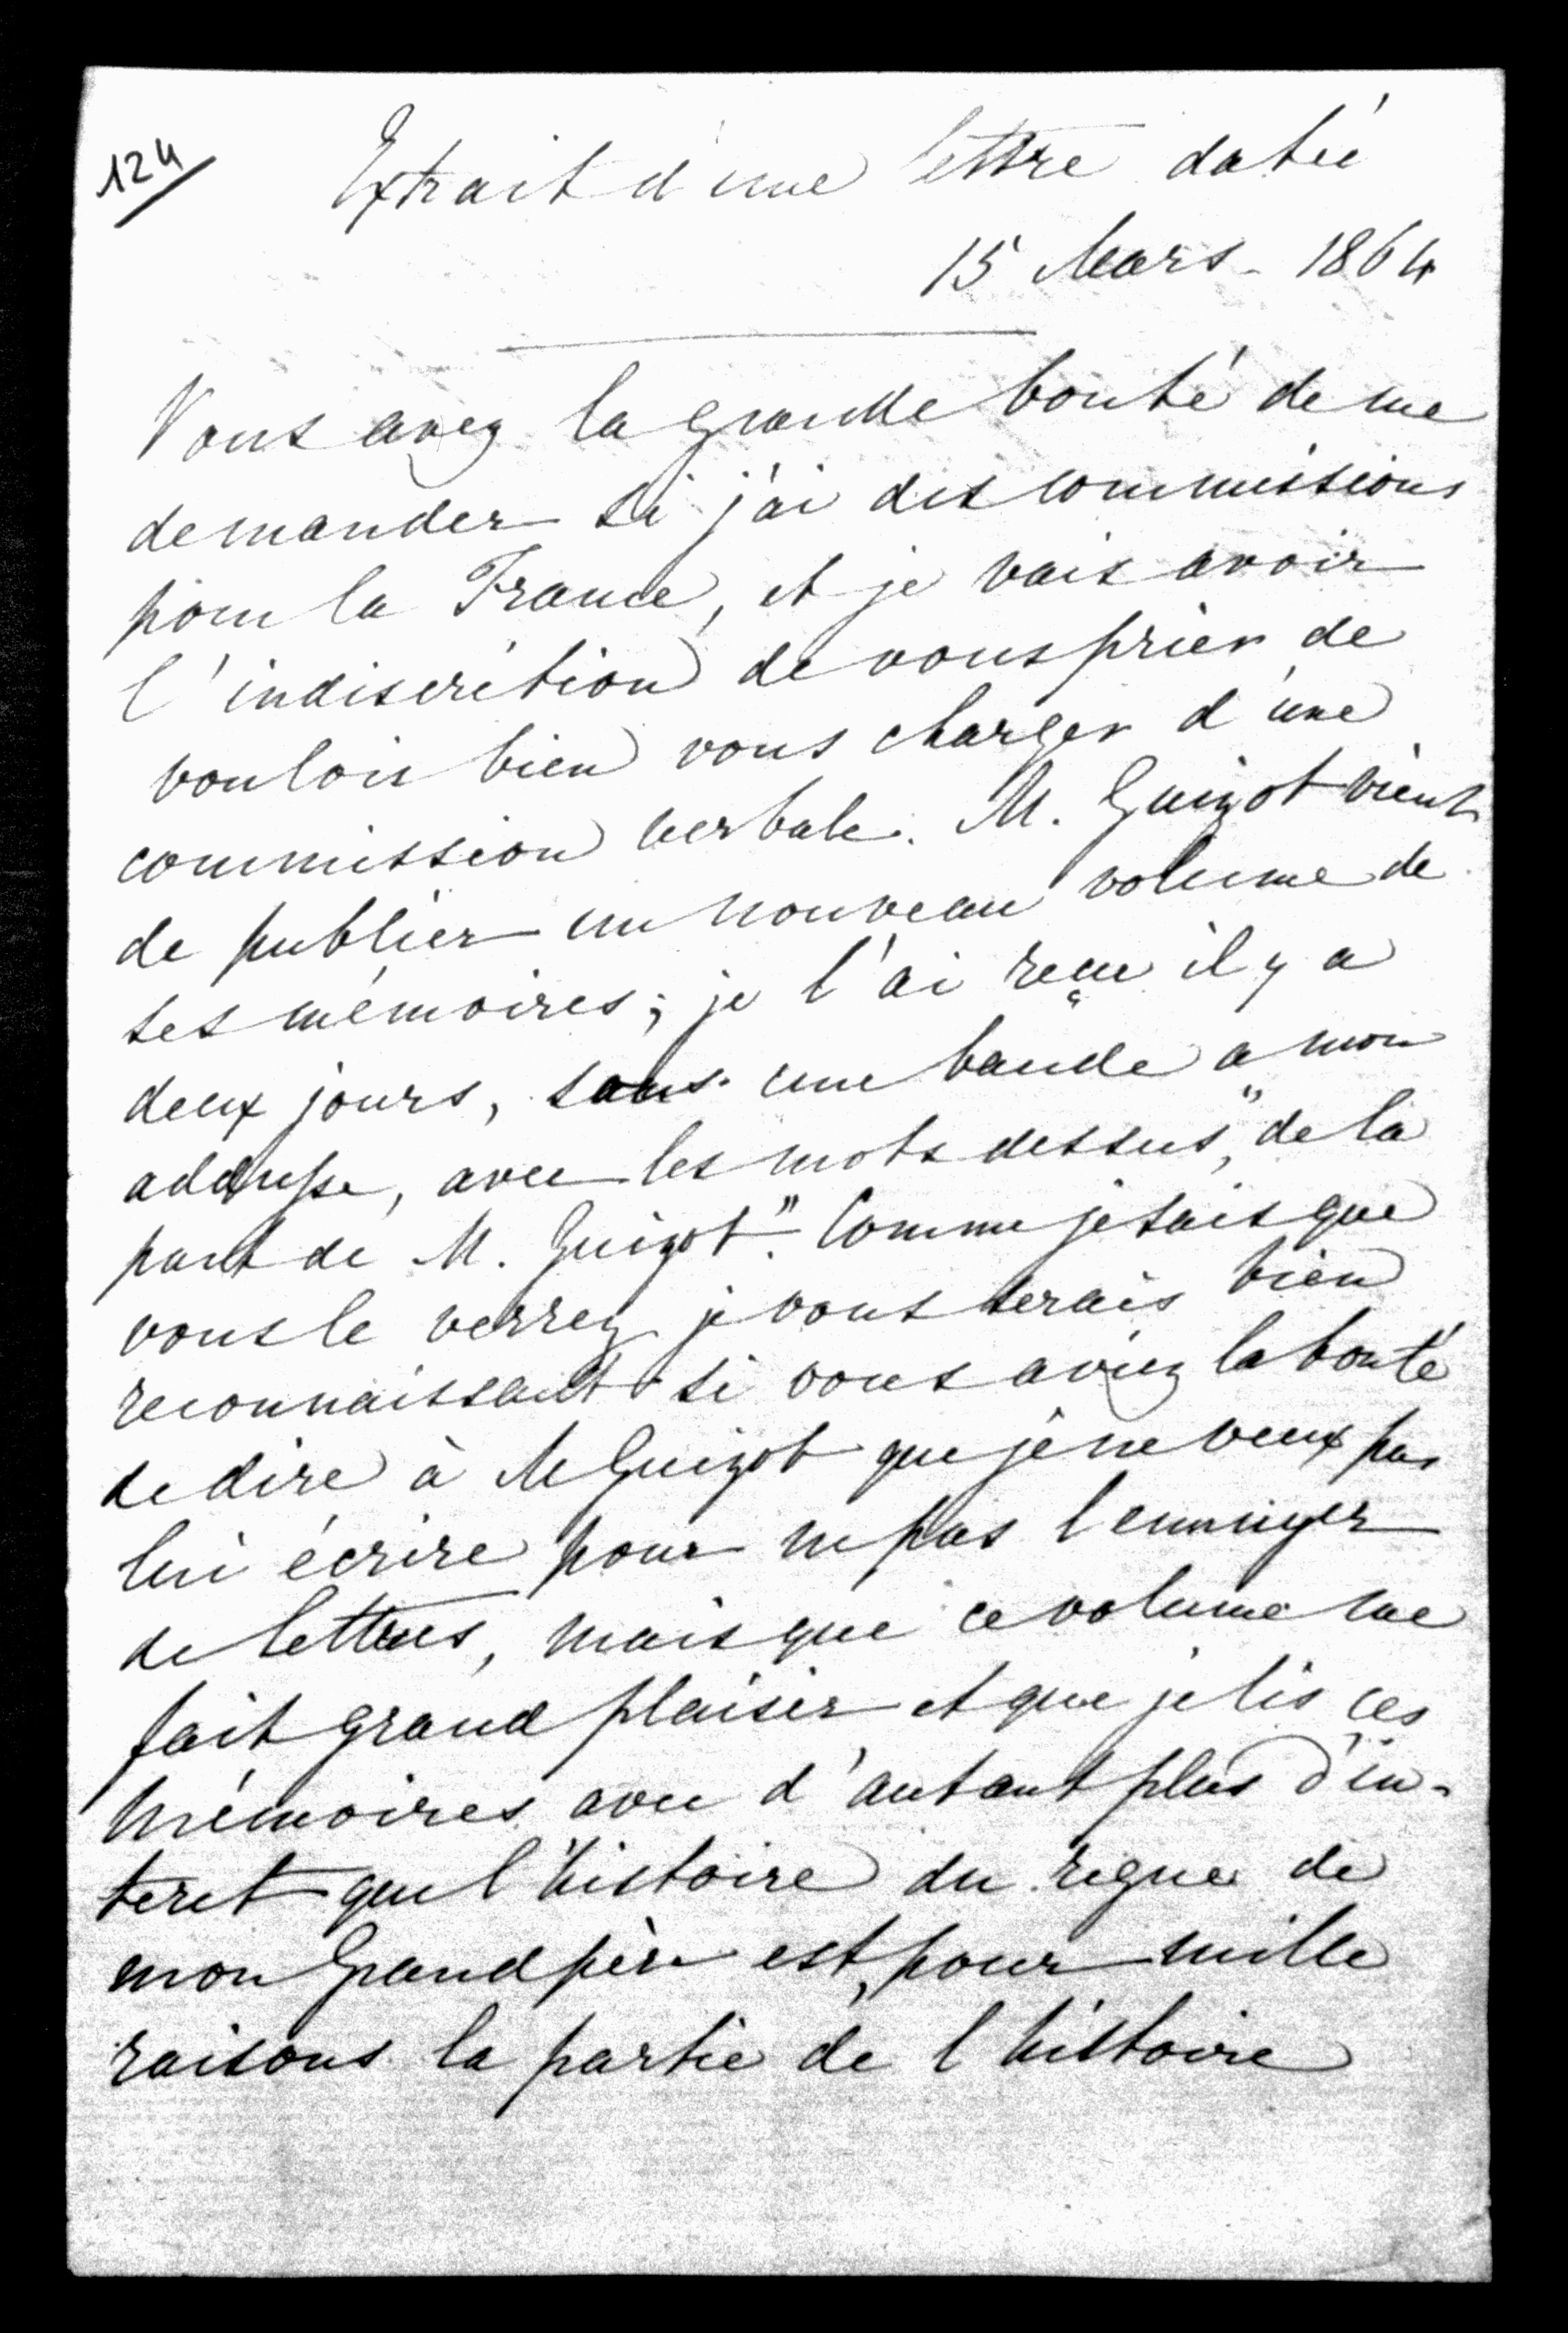 124
Extrait d'une lettre datée
15 Mars - 1864
Vous avez la grande bonté de me
demander si j'ai des commissions
pour la France, et je vais avoir
l'indiscrétion de vous prier de
vouloir bien vous charger d'une
commission verbale. M. Guizot vient
de publier un nouveau volume de
ses mémoires; je l'ai reçu il y a
deux jours, sous une bande a mon
addresse, avec les mots dessus, "de la
part de M. Guizot". Comme je sais que
vous le verrez je vous serais bien
reconnaissant si vous aviez la bonté
de dire à M Guizot que je ne veux pas
lui écrire pour ne pas l'ennuyer
de lettres, mais que ce volume me
fait grand plaisir et que je lis ces
mémoires avec d'autant plus d'in-
teret que l'histoire du regne de
mon Grand père est, pour mille
raisons la partie de l'histoire